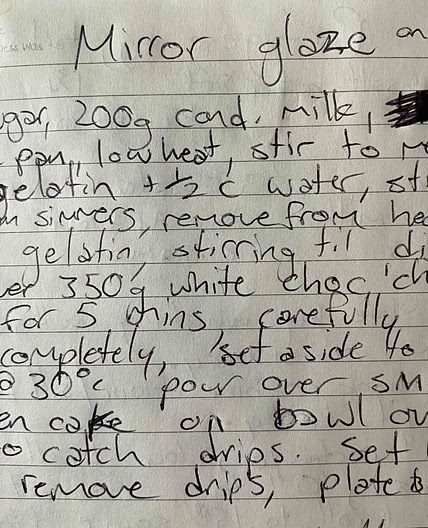 ness was
Mirror glaze on
gar, 200g cond. milk,
pan, low heat, stir to m
gelatin + ½ c water, sti
n simmers, remove from hea
gelatin, stirring til di
er 350g white choc ch
for 5 mins, carefully
completely, set aside to
@ 30°c pour over sm
en cake on bowl ov
o catch drips. Set
remove drips, plate &